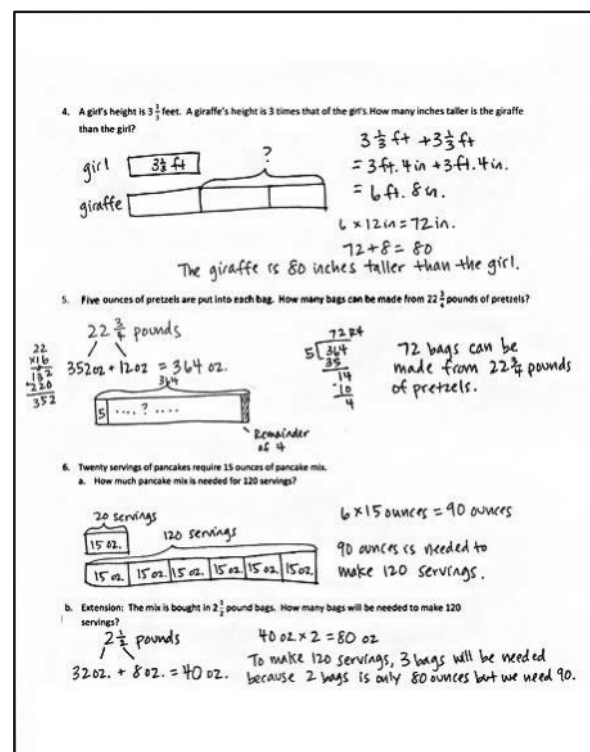 4. A girl's height is 3 1/3 feet. A giraffe's height is 3 times that of the girl's. How many inches taller is the giraffe
than the girl?
girl 3 1/3 ft
?
giraffe
3 1/3 ft + 3 1/3 ft
= 3 ft. 4 in + 3 ft. 4 in.
= 6 ft. 8 in.
6 x 12 in = 72 in.
72 + 8 = 80
The giraffe is 80 inches taller than the girl.
5. Five ounces of pretzels are put into each bag. How many bags can be made from 22 3/4 pounds of pretzels?
22 3/4 pounds
22
x16
132
220
352
352 oz + 12 oz = 364 oz.
364
5 .... ? ....
Remainder
of 4
72 R4
5 364
35
14
-10
4
72 bags can be
made from 22 3/4 pounds
of pretzels.
6. Twenty servings of pancakes require 15 ounces of pancake mix.
a. How much pancake mix is needed for 120 servings?
20 servings
15 oz.
120 servings
15 oz. 15 oz. 15 oz. 15 oz. 15 oz. 15 oz.
6 x 15 ounces = 90 ounces
90 ounces is needed to
make 120 servings.
b. Extension: The mix is bought in 2 1/2 pound bags. How many bags will be needed to make 120
servings?
2 1/2 pounds
32 oz. + 8 oz. = 40 oz.
40 oz x 2 = 80 oz
To make 120 servings, 3 bags will be needed
because 2 bags is only 80 ounces but we need 90.